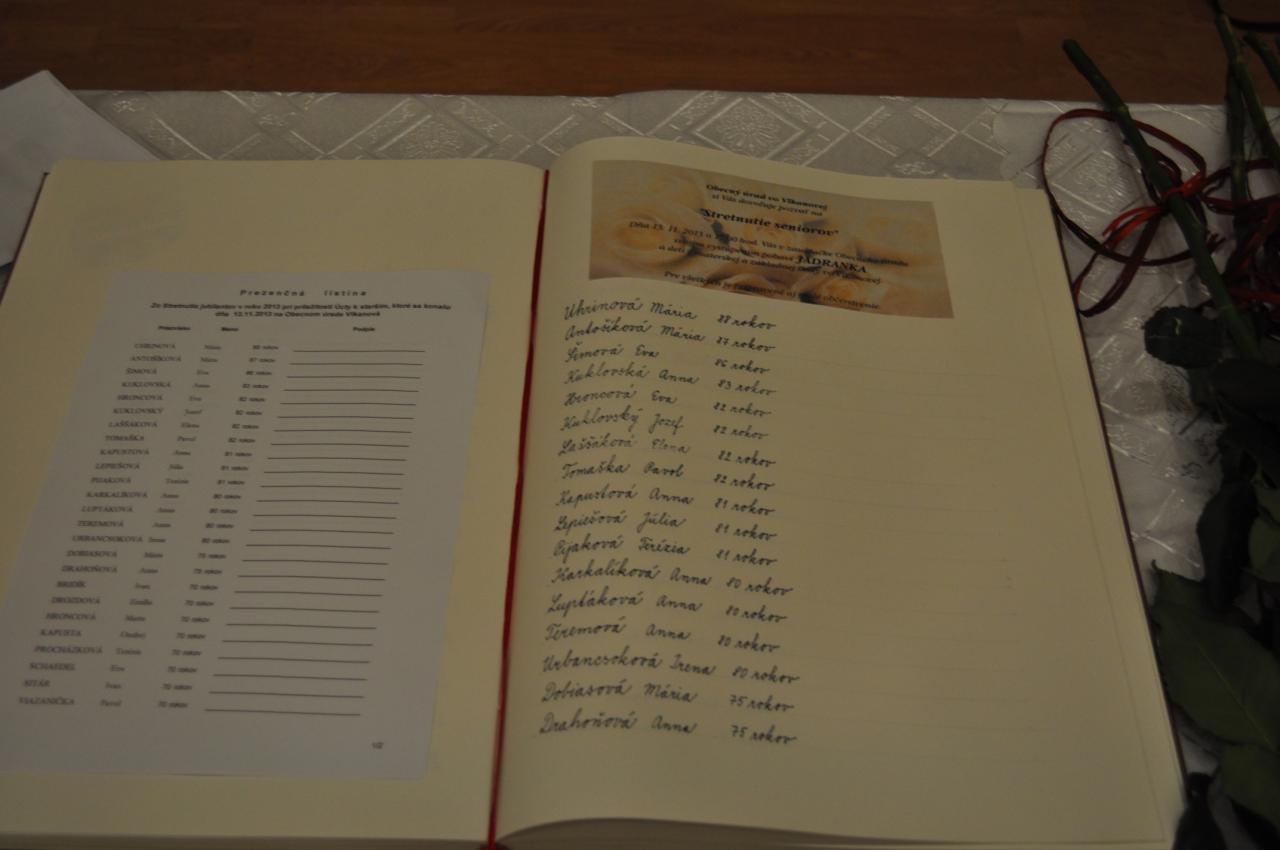 Prezenčná listina
Zo Stretnutia jubilantov v roku 2013 pri príležitosti Úcty k starším, ktoré sa konalo
dňa 13.11.2013 na Obecnom úrade Vlkanová
Priezvisko Meno Podpis
UHRINOVÁ Mária 88 rokov
ANTOŠÍKOVÁ Mária 87 rokov
ŠIMOVÁ Eva 86 rokov
KUKLOVSKÁ Anna 83 rokov
HRONCOVÁ Eva 82 rokov
KUKLOVSKÝ Jozef 82 rokov
LAŠŠÁKOVÁ Elena 82 rokov
TOMAŠKA Pavol 82 rokov
KAPUSTOVÁ Anna 81 rokov
LEPIEŠOVÁ Júlia 81 rokov
PIJAKOVÁ Terézia 81 rokov
KARKALÍKOVÁ Anna 80 rokov
LUPTÁKOVÁ Anna 80 rokov
TEREMOVÁ Anna 80 rokov
URBANCSOKOVÁ Irena 80 rokov
DOBIASOVÁ Mária 75 rokov
DRAHOŇOVÁ Anna 75 rokov
BRIDÍK Ivan 70 rokov
DROZDOVÁ Emília 70 rokov
HRONCOVÁ Marta 70 rokov
KAPUSTA Ondrej 70 rokov
PROCHÁZKOVÁ Terézia 70 rokov
SCHAEDEL Eva 70 rokov
SITÁR Ivan 70 rokov
VIAZANIČKA Pavol 70 rokov
1/2
Obecný úrad vo Vlkanovej
si Vás dovoľuje pozvať na
"Stretnutie seniorov"
Dňa 13. 11. 2013 o hod. Vás v zasadačke Obecného úradu
vystúpením pohostí JADRANKA
a deti materskej a základnej školy vo Vlkanovej
Pre všetkých je pripravené aj občerstvenie.
Uhrinová Mária 88 rokov
Antošíková Mária 87 rokov
Šimová Eva 86 rokov
Kuklovská Anna 83 rokov
Hroncová Eva 82 rokov
Kuklovský Jozef 82 rokov
Laššáková Elena 82 rokov
Tomaška Pavol 82 rokov
Kapustová Anna 81 rokov
Lepiešová Júlia 81 rokov
Pijaková Terézia 81 rokov
Karkalíková Anna 80 rokov
Luptáková Anna 80 rokov
Teremová Anna 80 rokov
Urbancsoková Irena 80 rokov
Dobiasová Mária 75 rokov
Drahoňová Anna 75 rokov